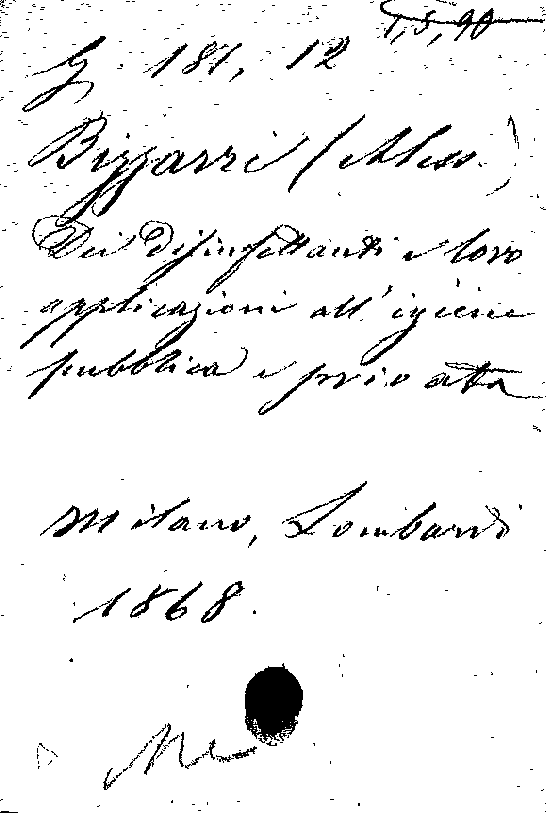 1,5,90
G. 181, 12
Bizzarri (Aless.)
Dei disinfettanti e loro
applicazioni all' igiene
pubblica e privata
Milano, Lombardi
1868.